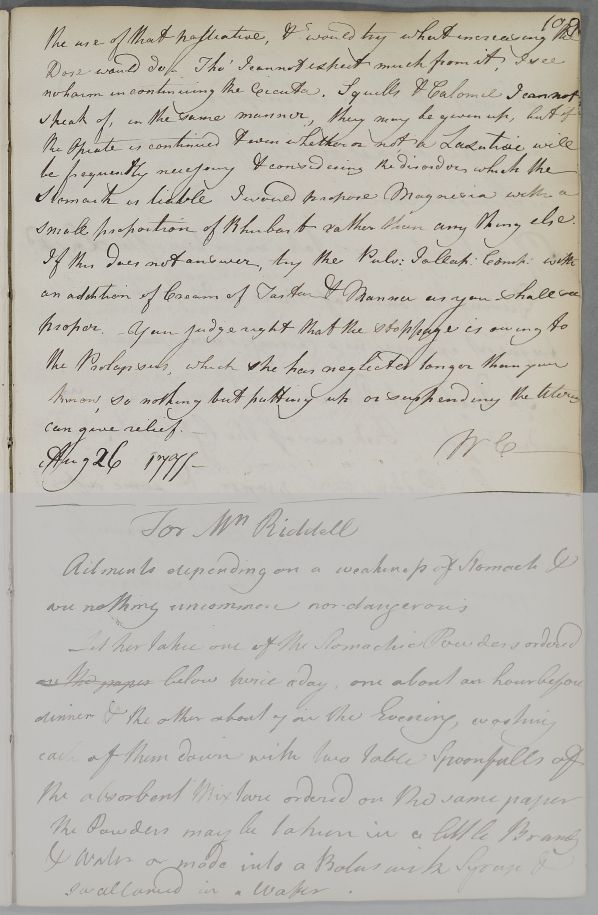 the use of that palliative, & would try what increasing the
Dose would do. Tho' I cannot expect much from it, I see
no harm in continuing the Cicuta. Squills & Calomel I cannot
speak of, in the same manner, they may be given up, but if
the Opiate is continued & even whether or not a Laxative will
be frequently necessary & considering the disorders which the
Stomach is liable I would propose Magnesia with a
small proportion of Rhubarb rather than any thing else.
If this does not answer, try the Pulv: Jallap: Comp: with
an addition of Cream of Tartar & Manna as you shall see
proper. You judge right that the stoppage is owing to
the Prolapsus, which she has neglected longer than you
know, so nothing but putting up or suspending the Uterus
can give relief.
Aug 26 W C
For Mrs Riddell
Ailments depending on a weakness of Stomach &
are nothing uncommon nor dangerous
Let her take one of the Stomachic Powders ordered
on the paper below twice a day, one about an hour before
dinner & the other about 7 in the Evening, washing
each of them down with two table Spoonfulls of
the absorbent Mixture ordered on the same paper
the Powders may be taken in a little Brandy
& Water or made into a Bolus with Syrup &
swallowed in a Wafer.